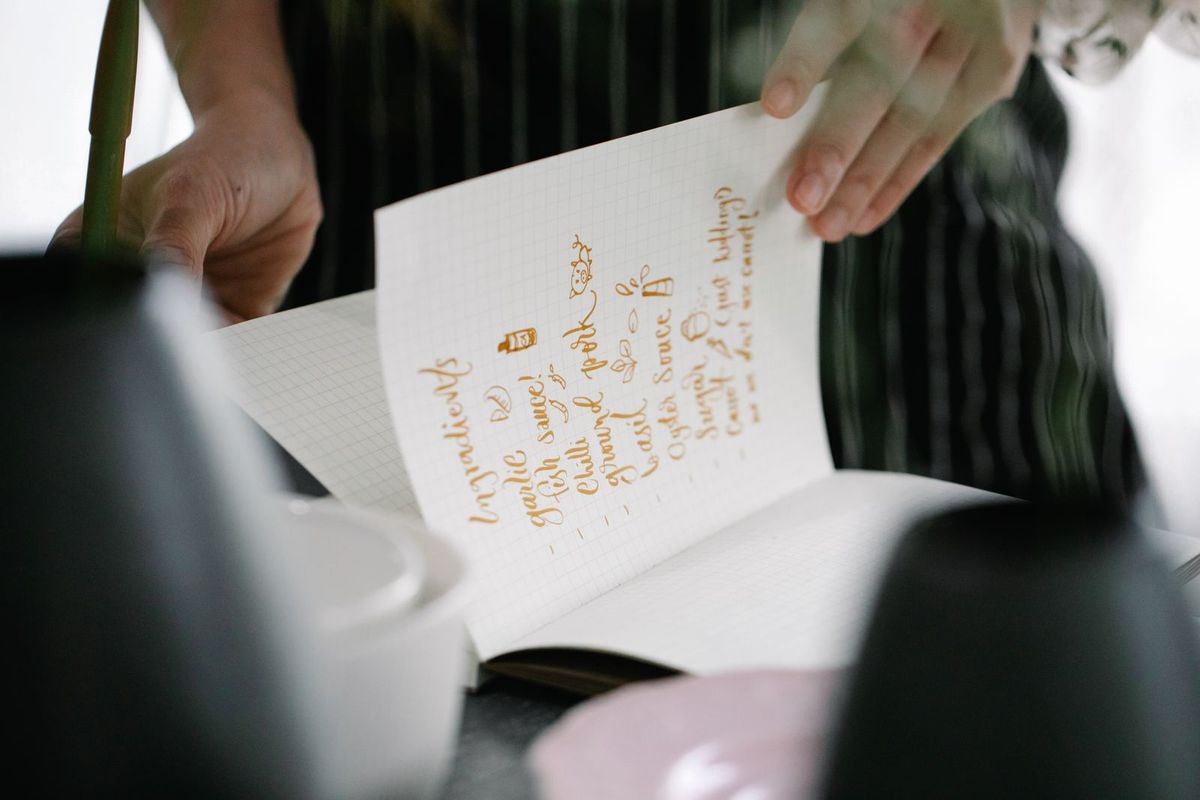 Ingradients
garlic
fish sauce!
Chilli
ground pork
basil
Oyster Souce
Sugar
Carrot (just kidding)
we don't use carrot!